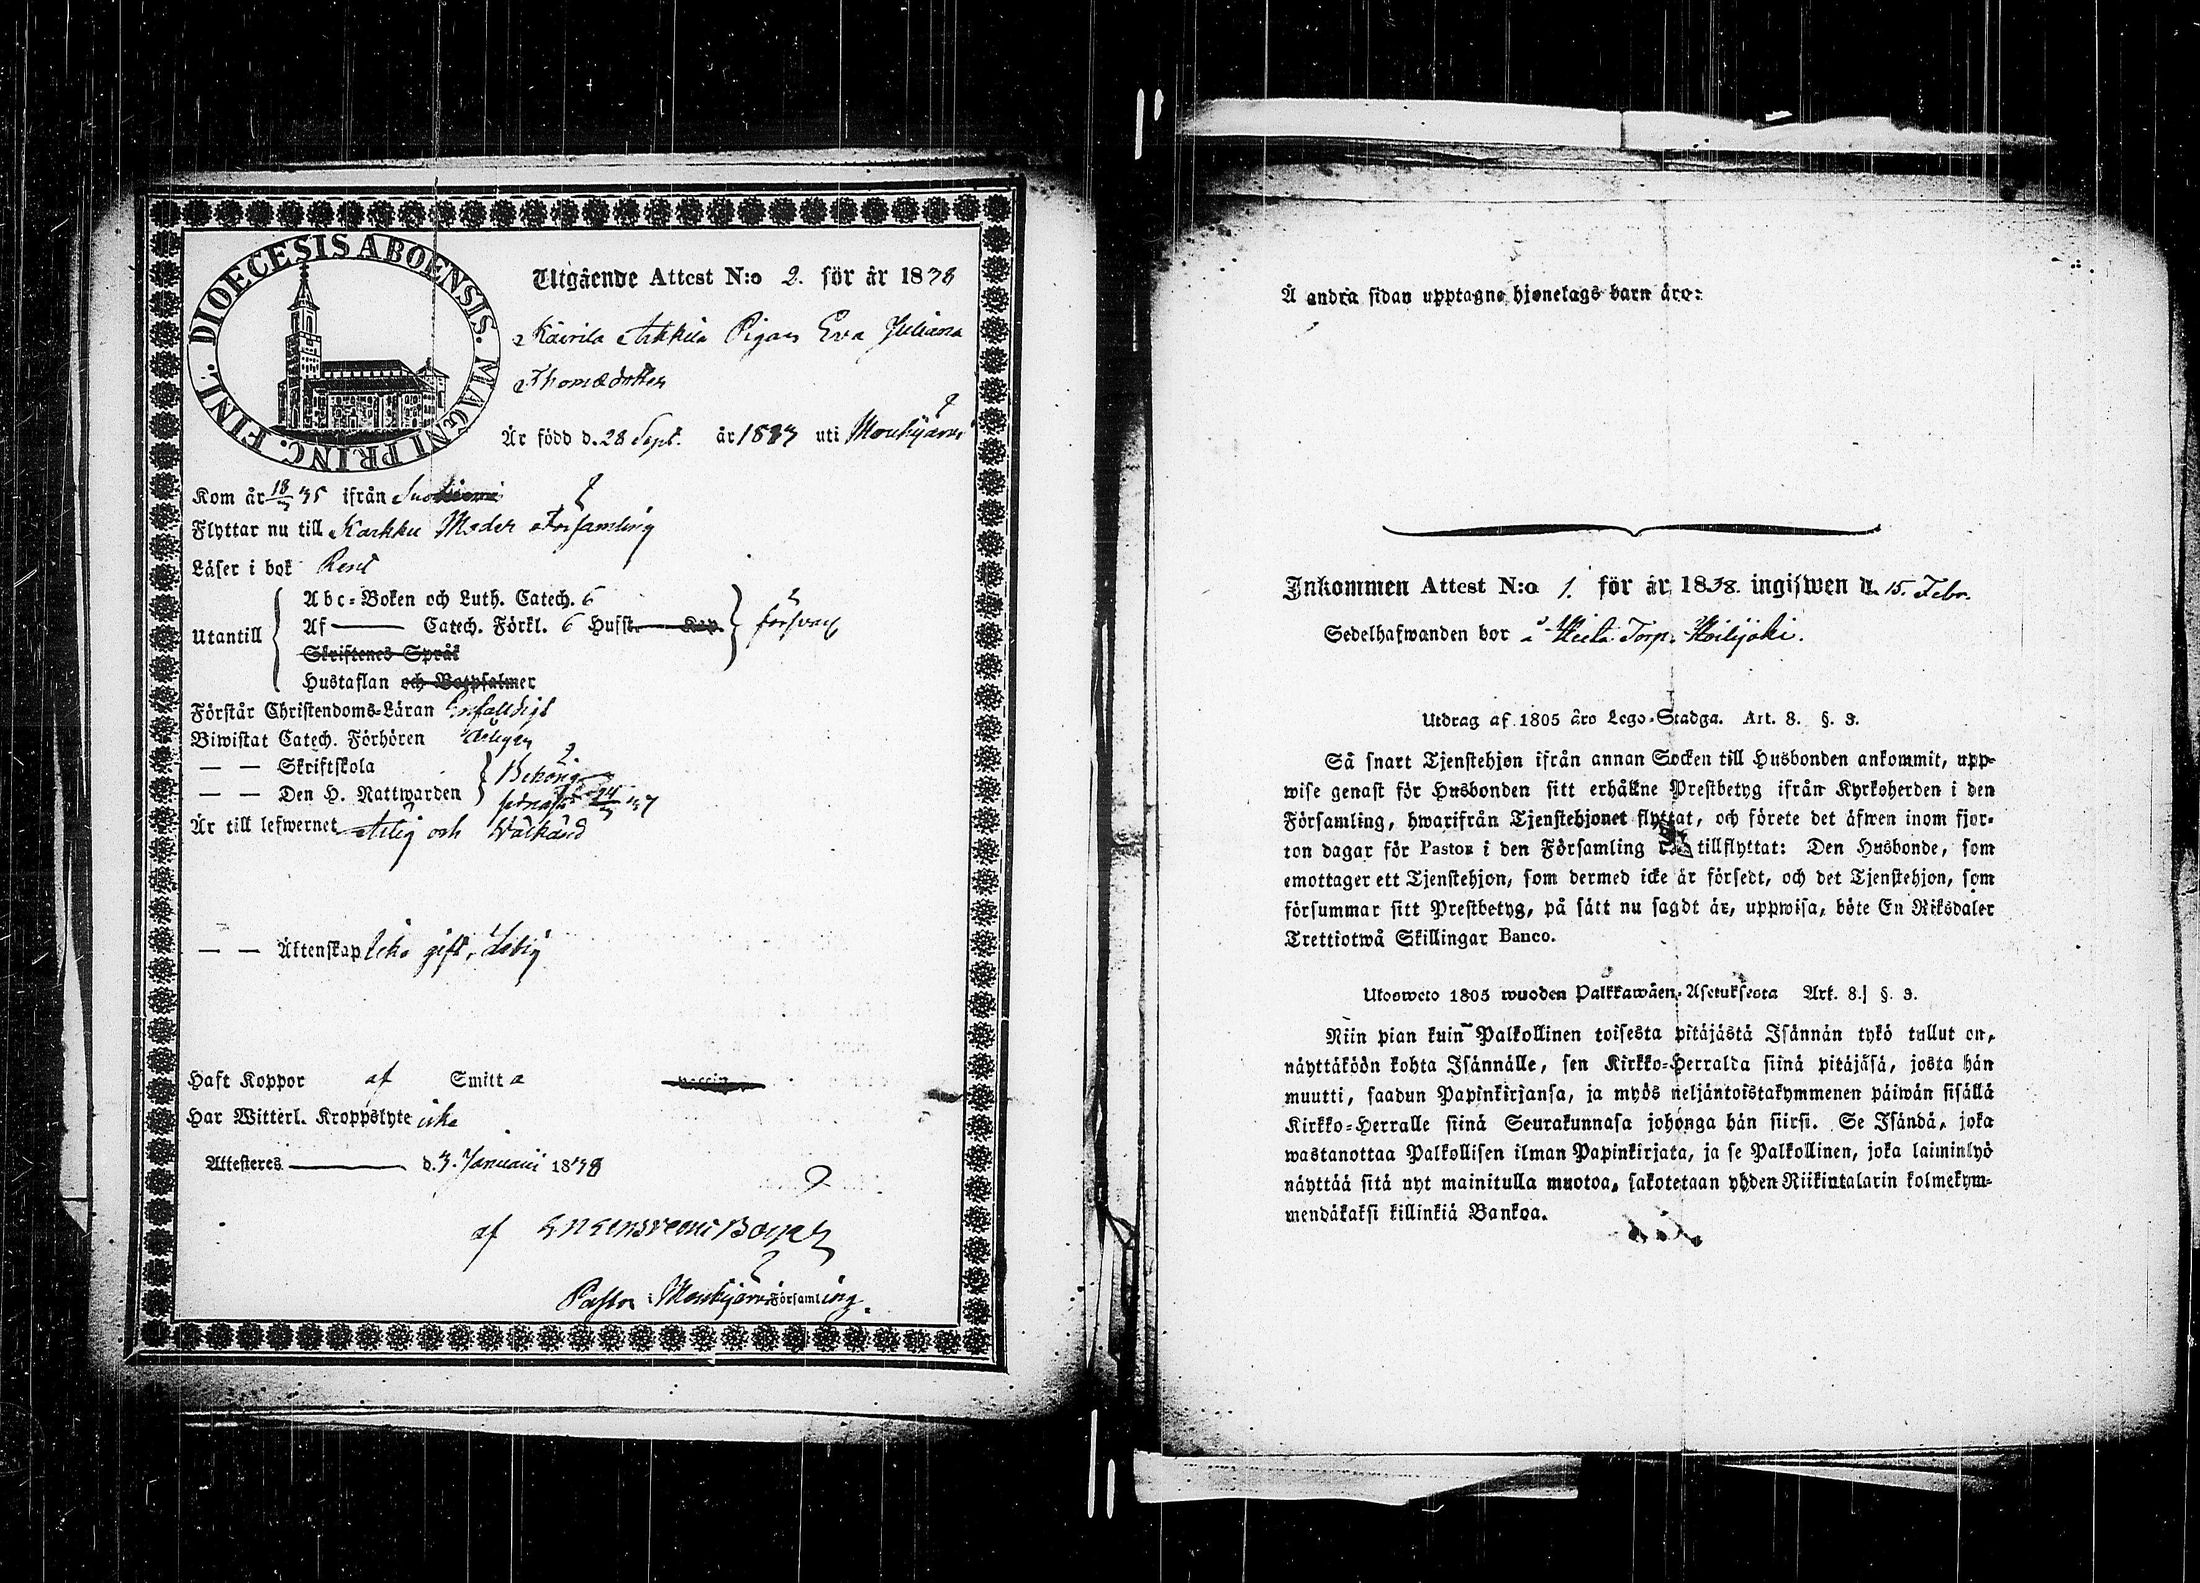 DIOECESIS ABOENSIS. MAGNI PRINC. FINL.
Utgående Attest N:o 2. för år 1838
Kairila Pigan Eva Juliana
Thomædotter
Är född d. 28 Sept. år 18 uti Mouhijärvi
Kom år 18 35 ifrån
Flyttar nu till Karkku Moder Församling
Läser i bok Rent
Utantill
Abc-Boken och Luth. Catech. 6
Af Catech. Förkl. 6 Husst. Kap.
försvar
Skriftenes Språk
Hustaflan och Botpsalmer
Förstår Christendoms-Läran Enfalldigt
Biwistat Catech. Förhören Årligen
— — Skriftskola
— — Den H. Nattwarden
Är till lefwernet Ärlig och Välkänd
— — Äktenskap Icke gift, Ledig
Haft Koppor af Smitta
Har Witterl. Kroppslyte icke
Attesteres d. 3. Januarii 1838
af
Pastor i Mouhijärvi Församling.
Å andra sidan upptagne hjonelags barn äro:
Inkommen Attest N:o 1. för år 1838. ingifwen d. 15. Febr.
Sedelhafwanden bor å Torp.
Utdrag af 1805 års Lego-Stadga. Art. 8. §. 3.
Så snart Tjenstehjon ifrån annan Socken till Husbonden ankommit, upp-
wise genast för Husbonden sitt erhållne Prestbetyg ifrån Kyrkoherden i den
Församling, hwarifrån Tjenstehjonet flyttat, och förete det äfwen inom fjor-
ton dagar för Pastor i den Församling tillflyttat: Den Husbonde, som
emottager ett Tjenstehjon, som dermed icke är försedt, och det Tjenstehjon, som
försummar sitt Prestbetyg, på sätt nu sagdt är, uppwisa, böte En Riksdaler
Trettiotwå Skillingar Banco.
Ulosweto 1805 wuoden Palkkawäen-Asetuksesta Art. 8. §. 3.
Niin pian kuin Palkollinen toisesta pitäjästä Isännän tykö tullut on,
näyttäköön kohta Isännälle, sen Kirkko-Herralda siinä pitäjäsä, josta hän
muutti, saadun Papinkirjansa, ja myös neljäntoistakymmenen päiwän sisällä
Kirkko-Herralle siinä Seurakunnasa johonga hän siirsi. Se Isändä, joka
wastanottaa Palkollisen ilman Papinkirjata, ja se Palkollinen, joka laiminlyö
näyttää sitä nyt mainitulla muotoa, sakotetaan yhden Riikintalarin kolmekym-
mendäkaksi killinkiä Bankoa.